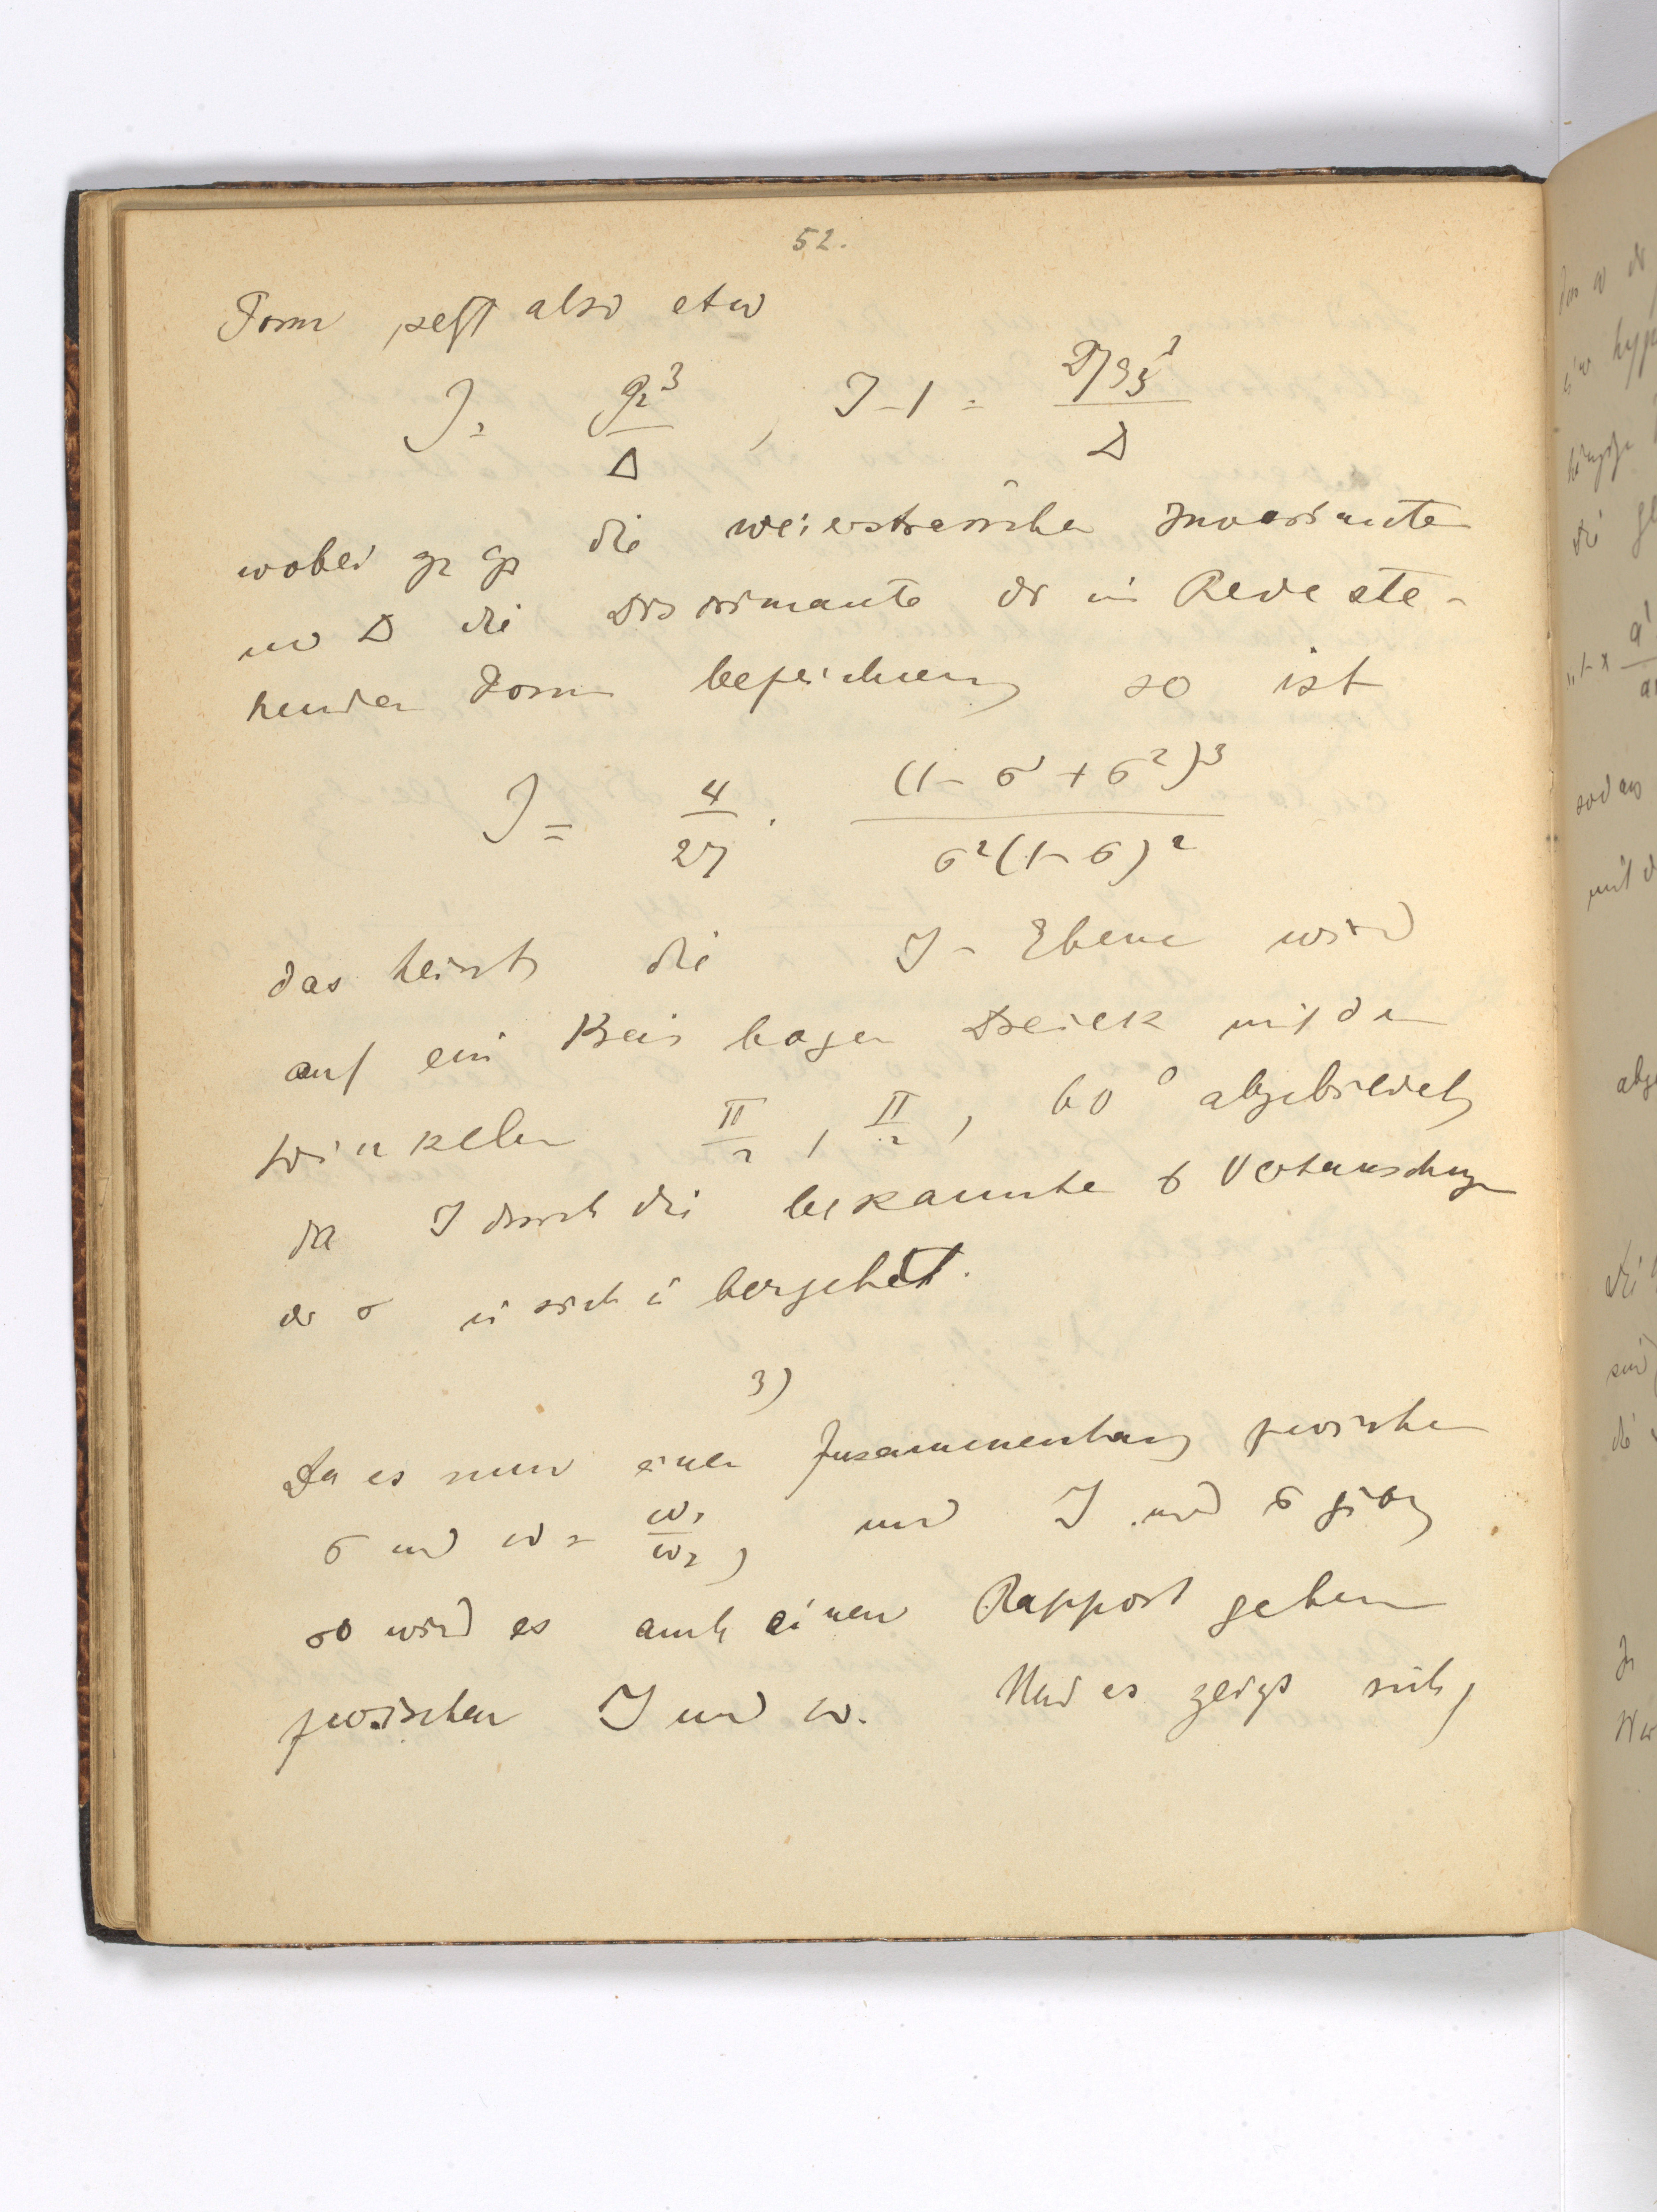 52.
Form setzt also etw
J = g₂³/Δ , J-1 = 27g₃²/Δ
wobei g₂ g₃ die weierstrassischen Invarianten
und Δ die Discriminante der in Rede ste-
henden Form bezeichnen, so ist
J = 4/27 · (1-σ+σ²)³/σ²(1-σ)²
das heisst, die J-Ebene wird
auf ein Kreisbogen Dreieck mit den
Winkeln π/2, π/2, 60° abgebildet,
da J durch die bekannten 6 Vertauschungen
der σ in sich übergehet.
3)
Da es nun einen Zusammenhang zwischen
σ und ω = ω₁/ω₂, und J und σ gibt,
so wird es auch einen Rapport geben
zwischen J und ω. Und es zeigt sich,